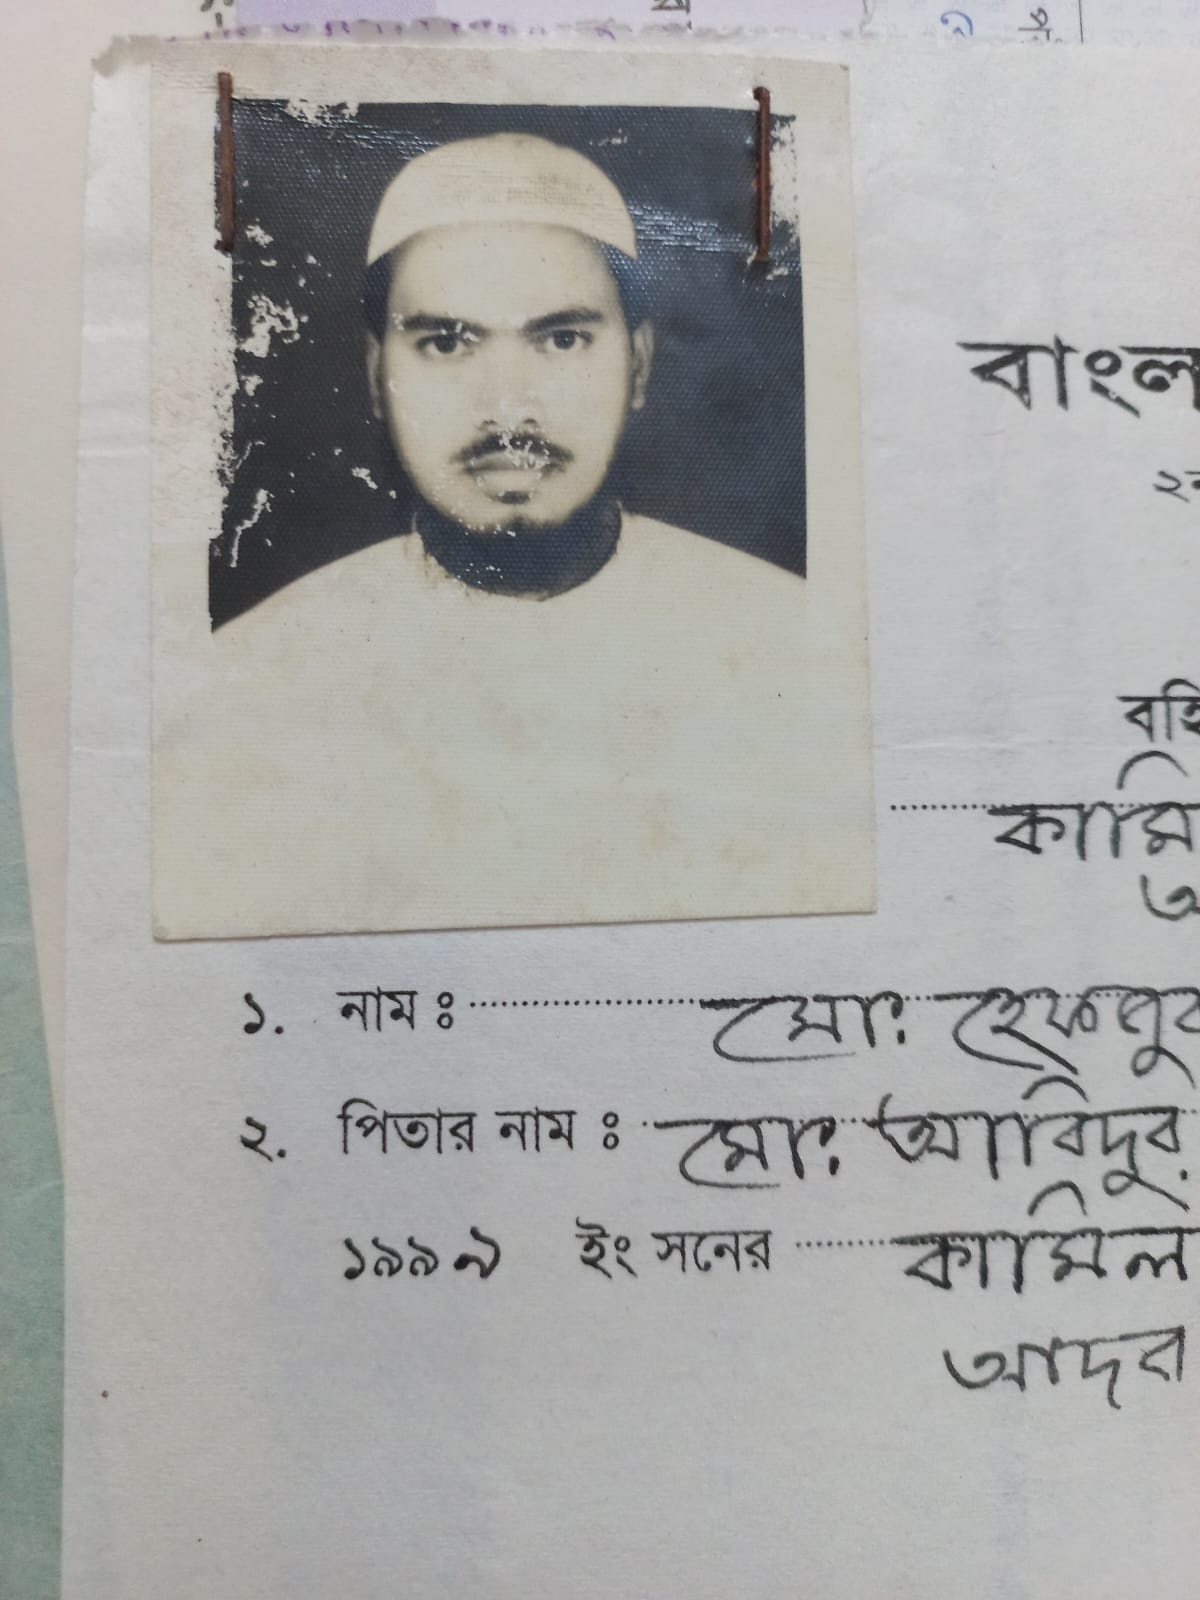 বাংল
বহি
কামি
১. নাম ঃ মো:
২. পিতার নাম ঃ মো: আবিদুর
১৯৯৯ ইং সনের কামিল
আদব